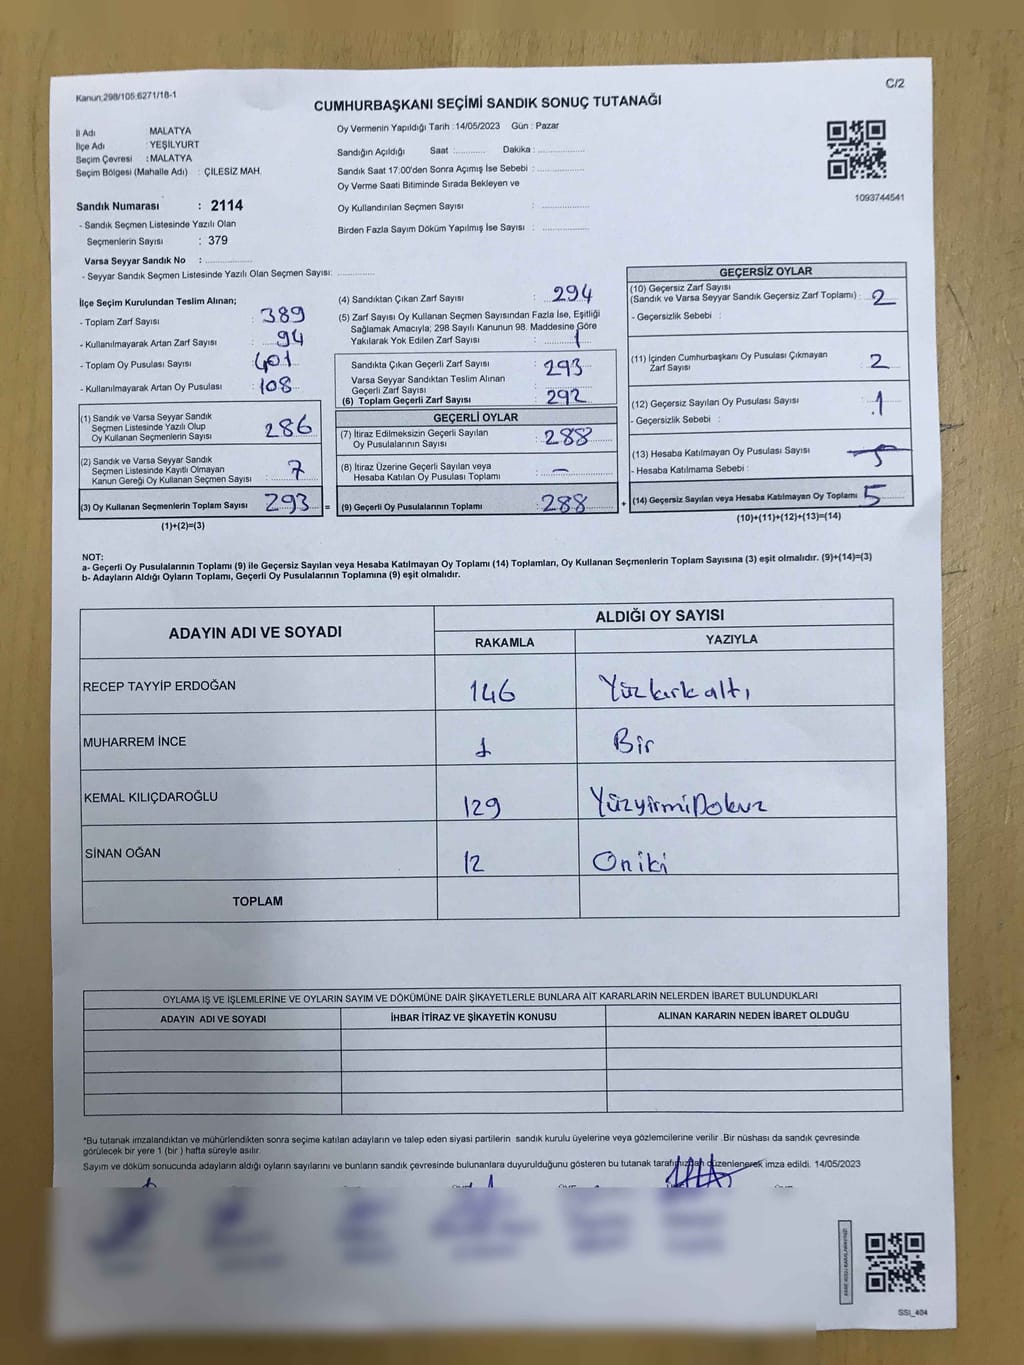 Kanun:298/105:6271/18-1
C/2
CUMHURBAŞKANI SEÇİMİ SANDIK SONUÇ TUTANAĞI
İl Adı MALATYA
İlçe Adı : YEŞİLYURT
Seçim Çevresi : MALATYA
Seçim Bölgesi (Mahalle Adı) : ÇİLESİZ MAH.
Sandık Numarası : 2114
- Sandık Seçmen Listesinde Yazılı Olan
Seçmenlerin Sayısı : 379
Varsa Seyyar Sandık No : ..............
- Seyyar Sandık Seçmen Listesinde Yazılı Olan Seçmen Sayısı: ............
Oy Vermenin Yapıldığı Tarih :14/05/2023 Gün : Pazar
Sandığın Açıldığı Saat :........... Dakika : ................
Sandık Saat 17:00'den Sonra Açımış İse Sebebi : ................
Oy Verme Saati Bitiminde Sırada Bekleyen ve
Oy Kullandırılan Seçmen Sayısı : ................
Birden Fazla Sayım Döküm Yapılmış İse Sayısı : ................
1093744541
İlçe Seçim Kurulundan Teslim Alınan;
- Toplam Zarf Sayısı : 389
- Kullanılmayarak Artan Zarf Sayısı : 94
- Toplam Oy Pusulası Sayısı : 401
- Kullanılmayarak Artan Oy Pusulası : 108
(1) Sandık ve Varsa Seyyar Sandık
Seçmen Listesinde Yazılı Olup
Oy Kullanan Seçmenlerin Sayısı : 286
(2) Sandık ve Varsa Seyyar Sandık
Seçmen Listesinde Kayıtlı Olmayan
Kanun Gereği Oy Kullanan Seçmen Sayısı : 7
(3) Oy Kullanan Seçmenlerin Toplam Sayısı 293 =
(1)+(2)=(3)
(4) Sandıktan Çıkan Zarf Sayısı : 294
(5) Zarf Sayısı Oy Kullanan Seçmen Sayısından Fazla İse, Eşitliği
Sağlamak Amacıyla; 298 Sayılı Kanunun 98. Maddesine Göre
Yakılarak Yok Edilen Zarf Sayısı : 1
Sandıkta Çıkan Geçerli Zarf Sayısı : 293
Varsa Seyyar Sandıktan Teslim Alınan
Geçerli Zarf Sayısı :
(6) Toplam Geçerli Zarf Sayısı : 292
GEÇERLİ OYLAR
(7) İtiraz Edilmeksizin Geçerli Sayılan
Oy Pusulalarının Sayısı : 288
(8) İtiraz Üzerine Geçerli Sayılan veya
Hesaba Katılan Oy Pusulası Toplamı : –
(9) Geçerli Oy Pusulalarının Toplamı : 288 +
GEÇERSİZ OYLAR
(10) Geçersiz Zarf Sayısı
(Sandık ve Varsa Seyyar Sandık Geçersiz Zarf Toplamı) : 2
- Geçersizlik Sebebi :
(11) İçinden Cumhurbaşkanı Oy Pusulası Çıkmayan
Zarf Sayısı : 2
(12) Geçersiz Sayılan Oy Pusulası Sayısı : 1
- Geçersizlik Sebebi :
(13) Hesaba Katılmayan Oy Pusulası Sayısı :
- Hesaba Katılmama Sebebi :
(14) Geçersiz Sayılan veya Hesaba Katılmayan Oy Toplamı : 5
(10)+(11)+(12)+(13)=(14)
NOT:
a- Geçerli Oy Pusulalarının Toplamı (9) ile Geçersiz Sayılan veya Hesaba Katılmayan Oy Toplamı (14) Toplamları, Oy Kullanan Seçmenlerin Toplam Sayısına (3) eşit olmalıdır. (9)+(14)=(3)
b- Adayların Aldığı Oyların Toplamı, Geçerli Oy Pusulalarının Toplamına (9) eşit olmalıdır.
ADAYIN ADI VE SOYADI ALDIĞI OY SAYISI
RAKAMLA YAZIYLA
RECEP TAYYİP ERDOĞAN 146 Yüzkırkaltı
MUHARREM İNCE 1 Bir
KEMAL KILIÇDAROĞLU 129 YüzyirmiDokuz
SİNAN OĞAN 12 Oniki
TOPLAM
OYLAMA İŞ VE İŞLEMLERİNE VE OYLARIN SAYIM VE DÖKÜMÜNE DAİR ŞİKAYETLERLE BUNLARA AİT KARARLARIN NELERDEN İBARET BULUNDUKLARI
ADAYIN ADI VE SOYADI İHBAR İTİRAZ VE ŞİKAYETİN KONUSU ALINAN KARARIN NEDEN İBARET OLDUĞU
*Bu tutanak imzalandıktan ve mühürlendikten sonra seçime katılan adayların ve talep eden siyasi partilerin sandık kurulu üyelerine veya gözlemcilerine verilir .Bir nüshası da sandık çevresinde
görülecek bir yere 1 (bir ) hafta süreyle asılır.
Sayım ve döküm sonucunda adayların aldığı oyların sayılarını ve bunların sandık çevresinde bulunanlara duyurulduğunu gösteren bu tutanak tarafımızdan düzenlenerek imza edildi. 14/05/2023
SSI_404